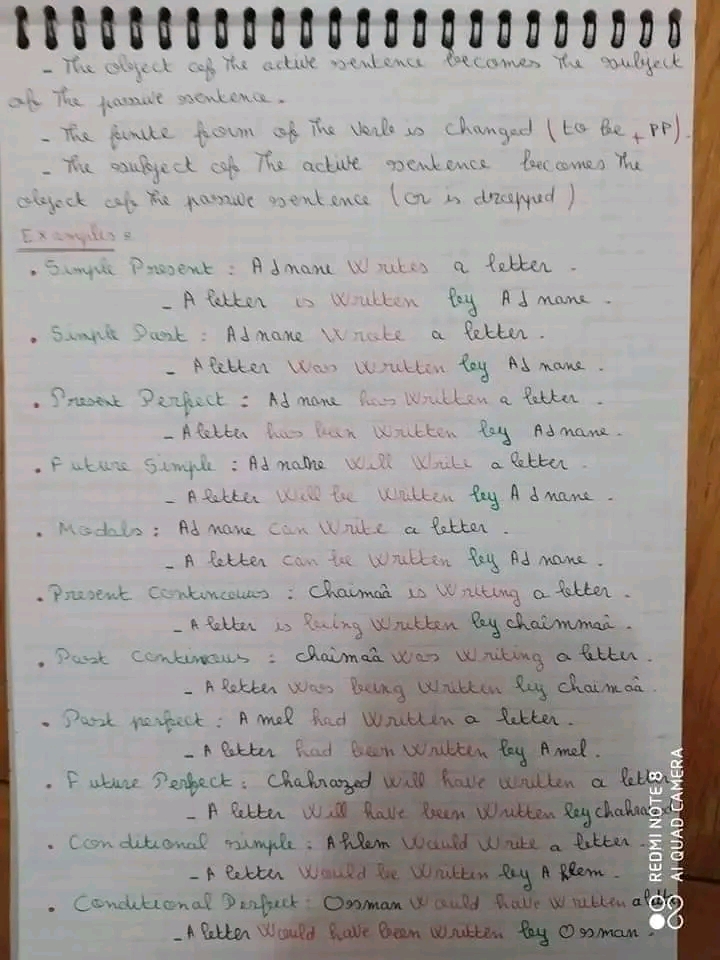 - The object of the active sentence becomes the subject
of the passive sentence.
- The finite form of the verb is changed (to be + PP).
- The subject of the active sentence becomes the
object of the passive sentence (or is dropped)
Examples:
. Simple Present : Adnane Writes a letter.
- A letter is Written by Adnane.
. Simple Past : Adnane Wrote a letter.
- A letter Was Written by Adnane.
. Present Perfect : Adnane has Written a letter.
- A letter has been Written by Adnane.
. Future Simple : Adnane Will Write a letter.
- A letter Will be Written by Adnane.
. Modals : Adnane can Write a letter.
- A letter can be Written by Adnane.
. Present Continuous : Chaimaâ is Writing a letter.
- A letter is being Written by chaimmaâ.
. Past Continuous : chaimaâ Was Writing a letter.
- A letter Was being Written by chaimaâ.
. Past perfect : Amel had Written a letter.
- A letter had been Written by Amel.
. Future Perfect : Chahrazed Will have Written a letter
- A letter Will have been Written by chahrazed
. Conditional simple : Ahlem Would Write a letter.
- A letter Would be Written by Ahlem.
. Conditional Perfect : Ossman Would have Written a
- A letter Would have been Written by Ossman.
REDMI NOTE 8
AI QUAD CAMERA